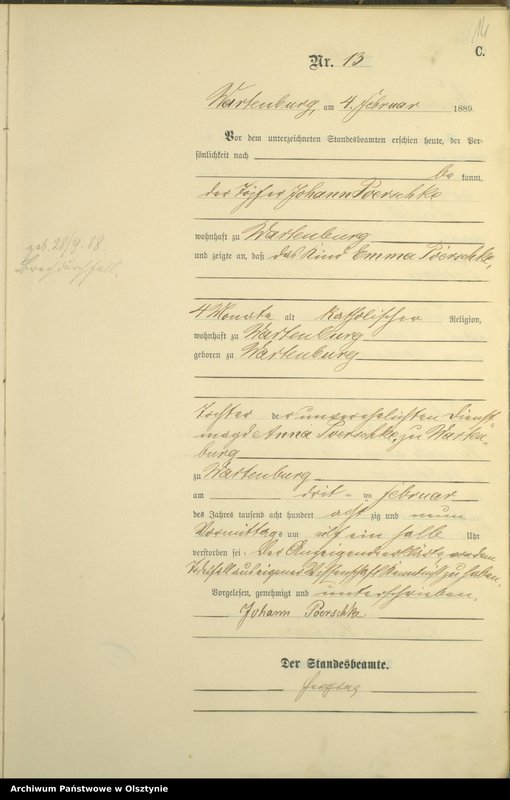 14
C.
Nr. 13
Wartenburg, am 4. Februar 1889.
Vor dem unterzeichneten Standesbeamten erschien heute, der Per-
sönlichkeit nach
be kannt,
der Töpfer Johann Poerschke
wohnhaft zu Wartenburg
und zeigte an, daß das Kind Emma Poerschke,
4 Monate alt katholischer Religion,
wohnhaft zu Wartenburg
geboren zu Wartenburg
geb. 28/9. 88.
Brechdurchfall.
Tochter der unverehelichten Dienst
magd Anna Poerschke, zu Warten"
burg
zu Wartenburg
am dritten Februar
des Jahres tausend acht hundert acht zig und neun
Vormittags um elf ein halb Uhr
verstorben sei. Der Anzeigende erklärte von dem
Todesfall aus eigener Wissenschaft Kenntniß zu haben.
Vorgelesen, genehmigt und unterschrieben.
Johann Poerschke
Der Standesbeamte.
Archiwum Państwowe w Olsztynie